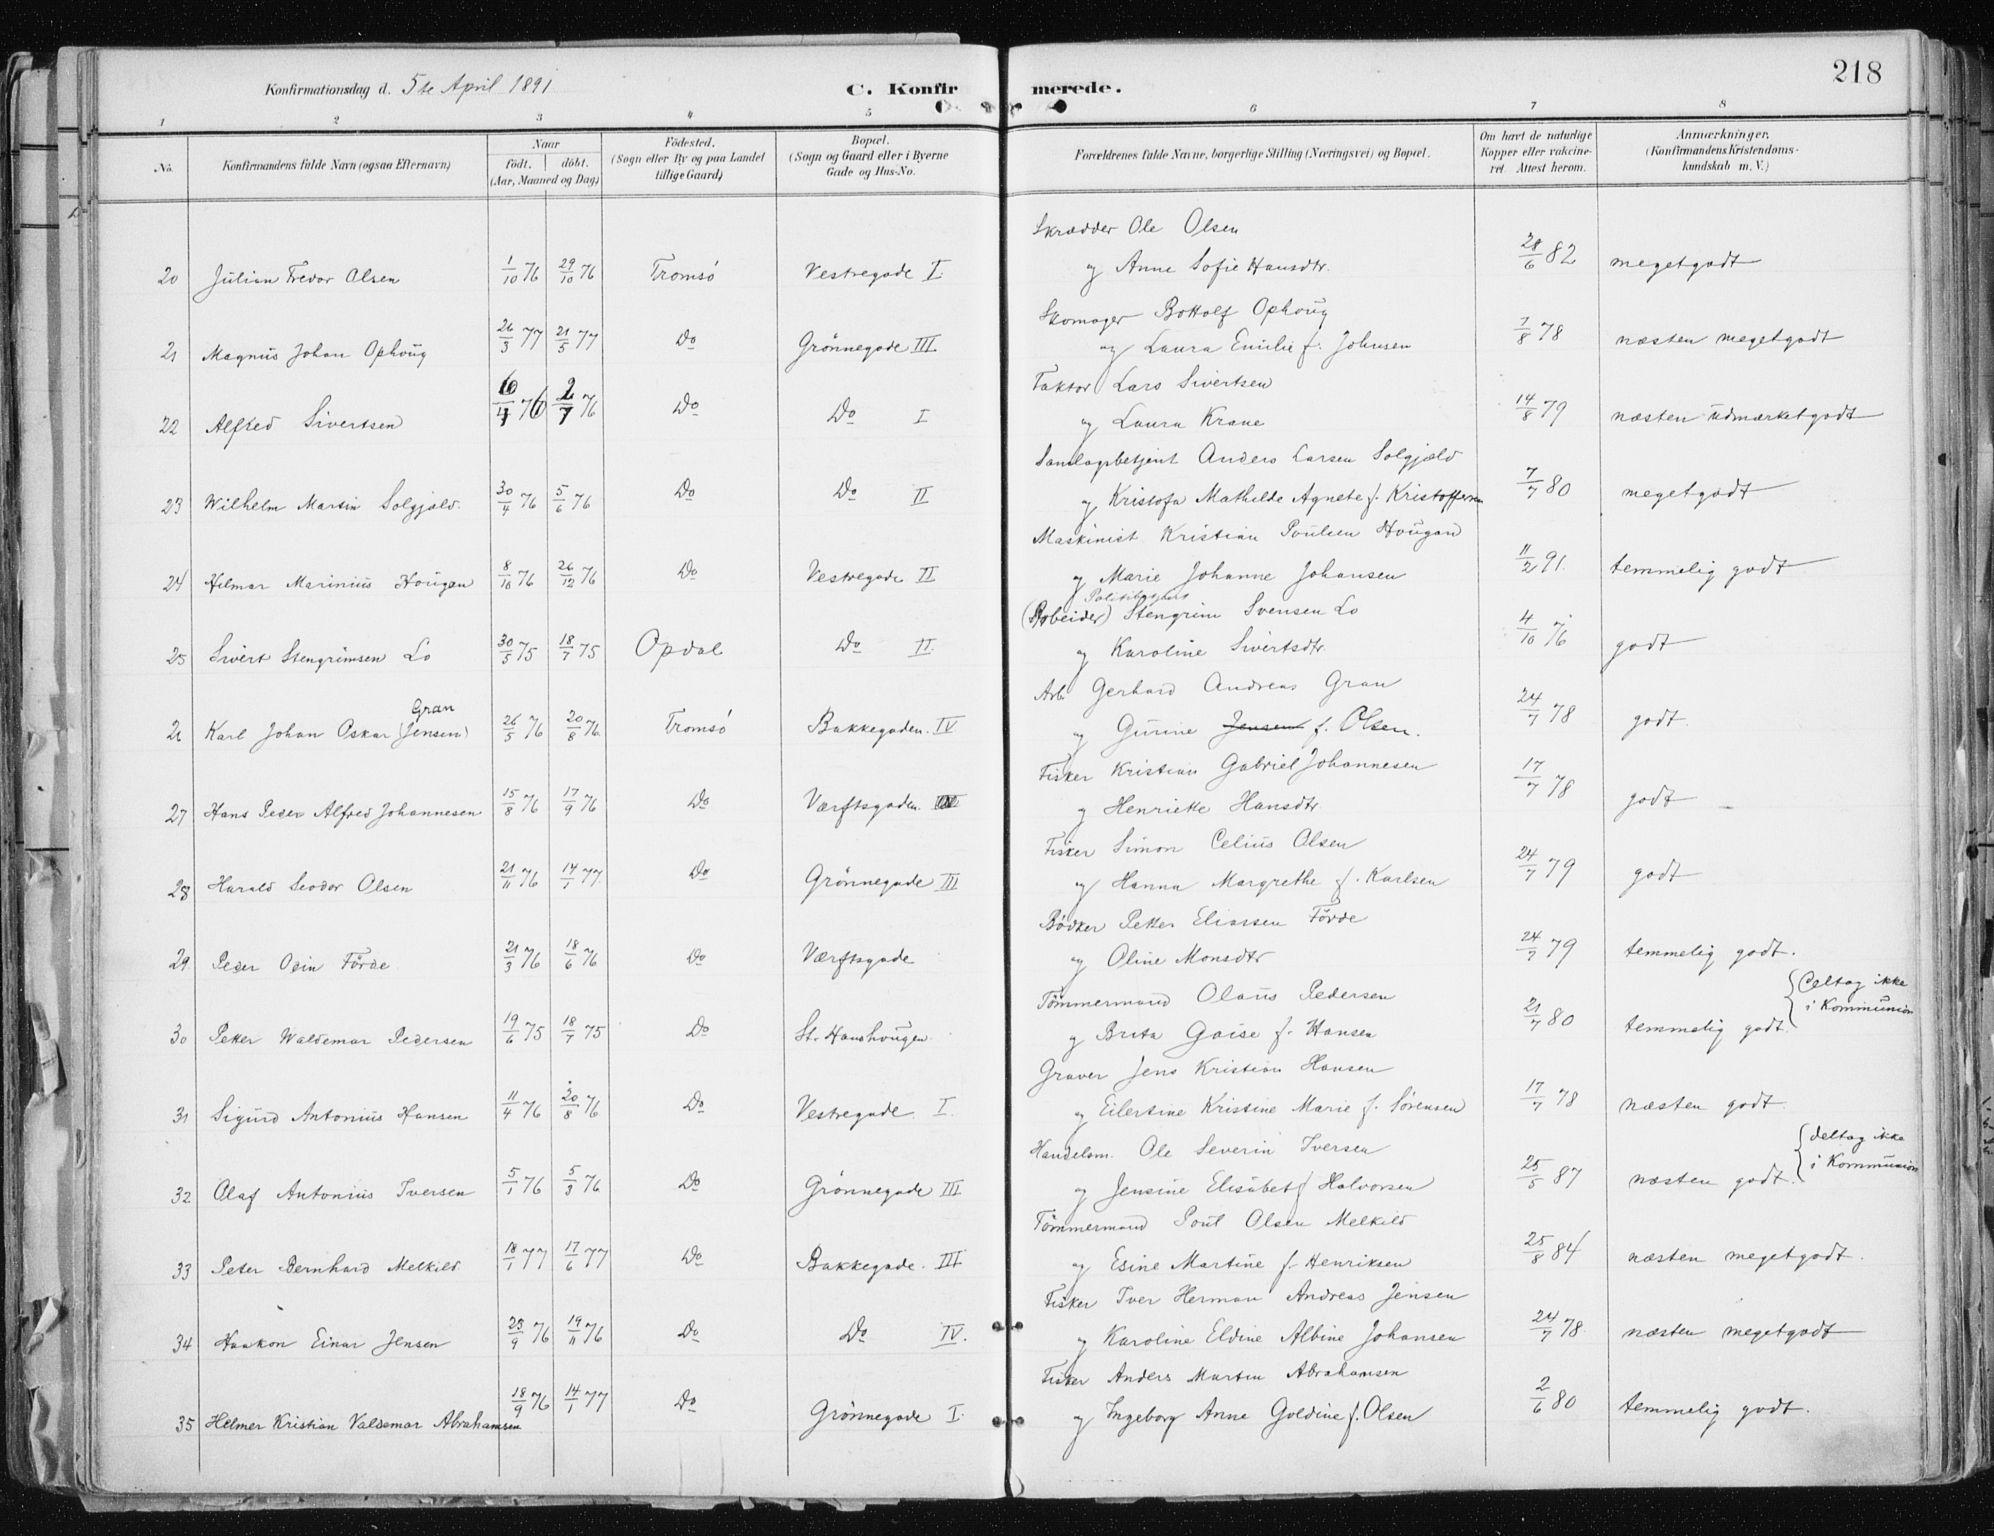 218
Konfirmationsdag d. 5te April 1891
C. Konfirmerede.
1 2 3 4 5 6 7 8
No. Konfirmandens fulde Navn (ogsaa Efternavn) Naar født. døbt. (Aar, Maaned og Dag) Fødested. (Sogn eller By og paa Landet tillige Gaard) Bopæl. (Sogn og Gaard eller i Byerne Gade og Hus-No. Forældrenes fulde Navne, borgerlige Stilling (Næringsvei) og Bopæl. Om havt de naturlige Kopper eller vakcineret. Attest herom. Anmærkninger. (Konfirmandens Kristendomskundskab m. V.)
Skrædder Ole Olsen
20 Julian Fredor Olsen 1/10 76 29/10 76 Tromsö Vestregade I. og Anne Sofie Hansdtr. 28/6 82 megetgodt
Skomager Bottolf Ophoug
21 Magnus Johan Ophoug 26/3 77 21/5 77 Do Grönnegade III og Laura Emilie f. Johnsen 7/8 78 næsten megetgodt
Faktor Lars Sivertsen
22 Alfred Sivertsen 76 2/7 76 Do Do I og Laura Krane 14/8 79 næsten udmærketgodt
Samlagsbetjent Anders Larsen Solgjæld
23 Wilhelm Martin Solgjæld. 30/4 76 5/6 76 Do Do II og Kristofa Mathilde Agnete f. Kristoffersen 7/7 80 megetgodt
Maskinist Kristian Poulsen Hougan
24 Hilmar Marinius Hougan 8/10 76 26/12 76 Do Vestregade II og Marie Johanne Johansen 11/2 91. temmelig godt
Politibetjent
(Arbeider) Stengrim Svensen Lo
25 Sivert Stengrimsen Lo 30/5 75 18/7 75 Opdal Do II. og Karoline Sivertsdtr. 4/10 76 godt
Arb. Gerhard Andreas Gran
Gran
26 Karl Johan Oskar (Jensen) 26/5 76 20/8 76. Tromsö Bakkegaden. IV og Gurine Jensen f. Olsen. 24/7 78 godt.
Fisker Kristian Gabriel Johannesen
27 Hans Peder Alfred Johannesen 15/8 76 17/9 76 Do Værftsgaden. og Henriette Hansdtr. 17/7 78 godt
Fisker Simon Celius Olsen
28 Harald Seodor Olsen 21/11 76 14/1 77. Do Grönnegade III og Hanna Margrethe f. Karlsen 24/7 79 godt
Bödker Petter Eliassen Förde
29. Peder Odin Förde 21/3 76 18/6 76 Do Værftsgade og Oline Monsdtr 24/7 79 temmelig godt.
Tömmermand Olaus Pedersen
30 Petter Waldemar Pedersen 19/6 75 18/7 75 Do St. Hanshougen. og Brita Gaise f. Hansen 21/7 80 temmelig godt. {Deltog ikke i Kommunion
Graver Jens Kristian Hansen
31 Sigurd Antonius Hansen 11/4 76 20/8 76 Do Vestregade I. og Eilertine Kristine Marie f. Sörensen 17/7 78 næsten godt.
Handelsm. Ole Severin Iversen
32 Olaf Antonius Iversen 5/1 76 5/3 76 Do Grönnegade III og Jensine Elisabet f. Halvorsen 25/5 87 næsten godt. {deltog ikke i Kommunion
Tömmermand Poul Olsen Melkild
33 Peter Bernhard Melkild. 18/1 77 17/6 77 Do Bakkegade. III og Esine Martine f. Henriksen 25/8 84 næsten megetgodt.
Fisker Iver Herman Andreas Jensen
34 Haakon Einar Jensen 23/9 76 19/11 76 Do Do IV. og Karoline Eldine Albine Johansen 24/7 78. næsten megetgodt
Fisker Anders Martin Abrahamsen
35 Helmer Kristian Valdemar Abrahamsen 18/9 76 14/1 77 Do Grönnegade I. og Ingeborg Anne Goldine f. Olsen 2/6 80 temmelig godt.